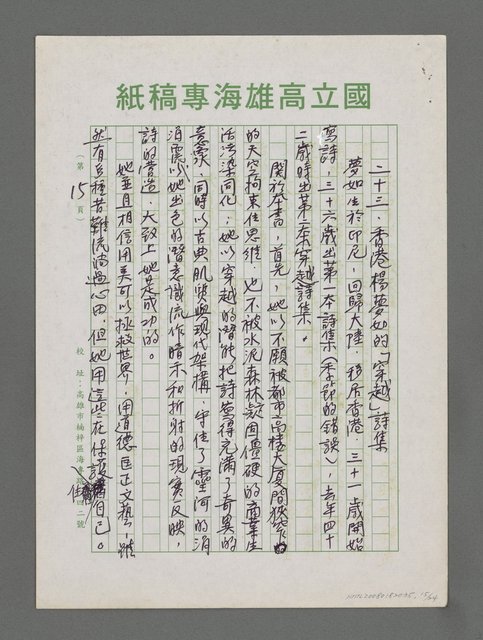 國立高雄海專稿紙
二十三、香港楊夢如的「穿越」詩集
夢如生於印尼，回歸大陸，移居香港，三十一歲開始
寫詩，三十六歲出第一本詩集（季節的錯誤），去年四十
二歲時出第二本穿越詩集。
關於本書，首先，她以不願被都市高樓大廈間狹窄的
的天空拘束住思維，也不被水泥森林凝固僵硬的商業生
活污染同化；她以穿越的潛能把詩萬得充滿了奇異的
意象，同時以古典肌質與現代架構，守住了靈河的消
消震以她出色的潛意識流作暗示和折射的現實反映，
詩的營造，大致上她是成功的。
她並且相信用美可以拯救世界，用道德匡正文藝，雖
然有多種苦難流淌過心田，但她用這些在保護著自己。
（第15頁）
校址：高雄市楠梓區海專路 四二號
15/24